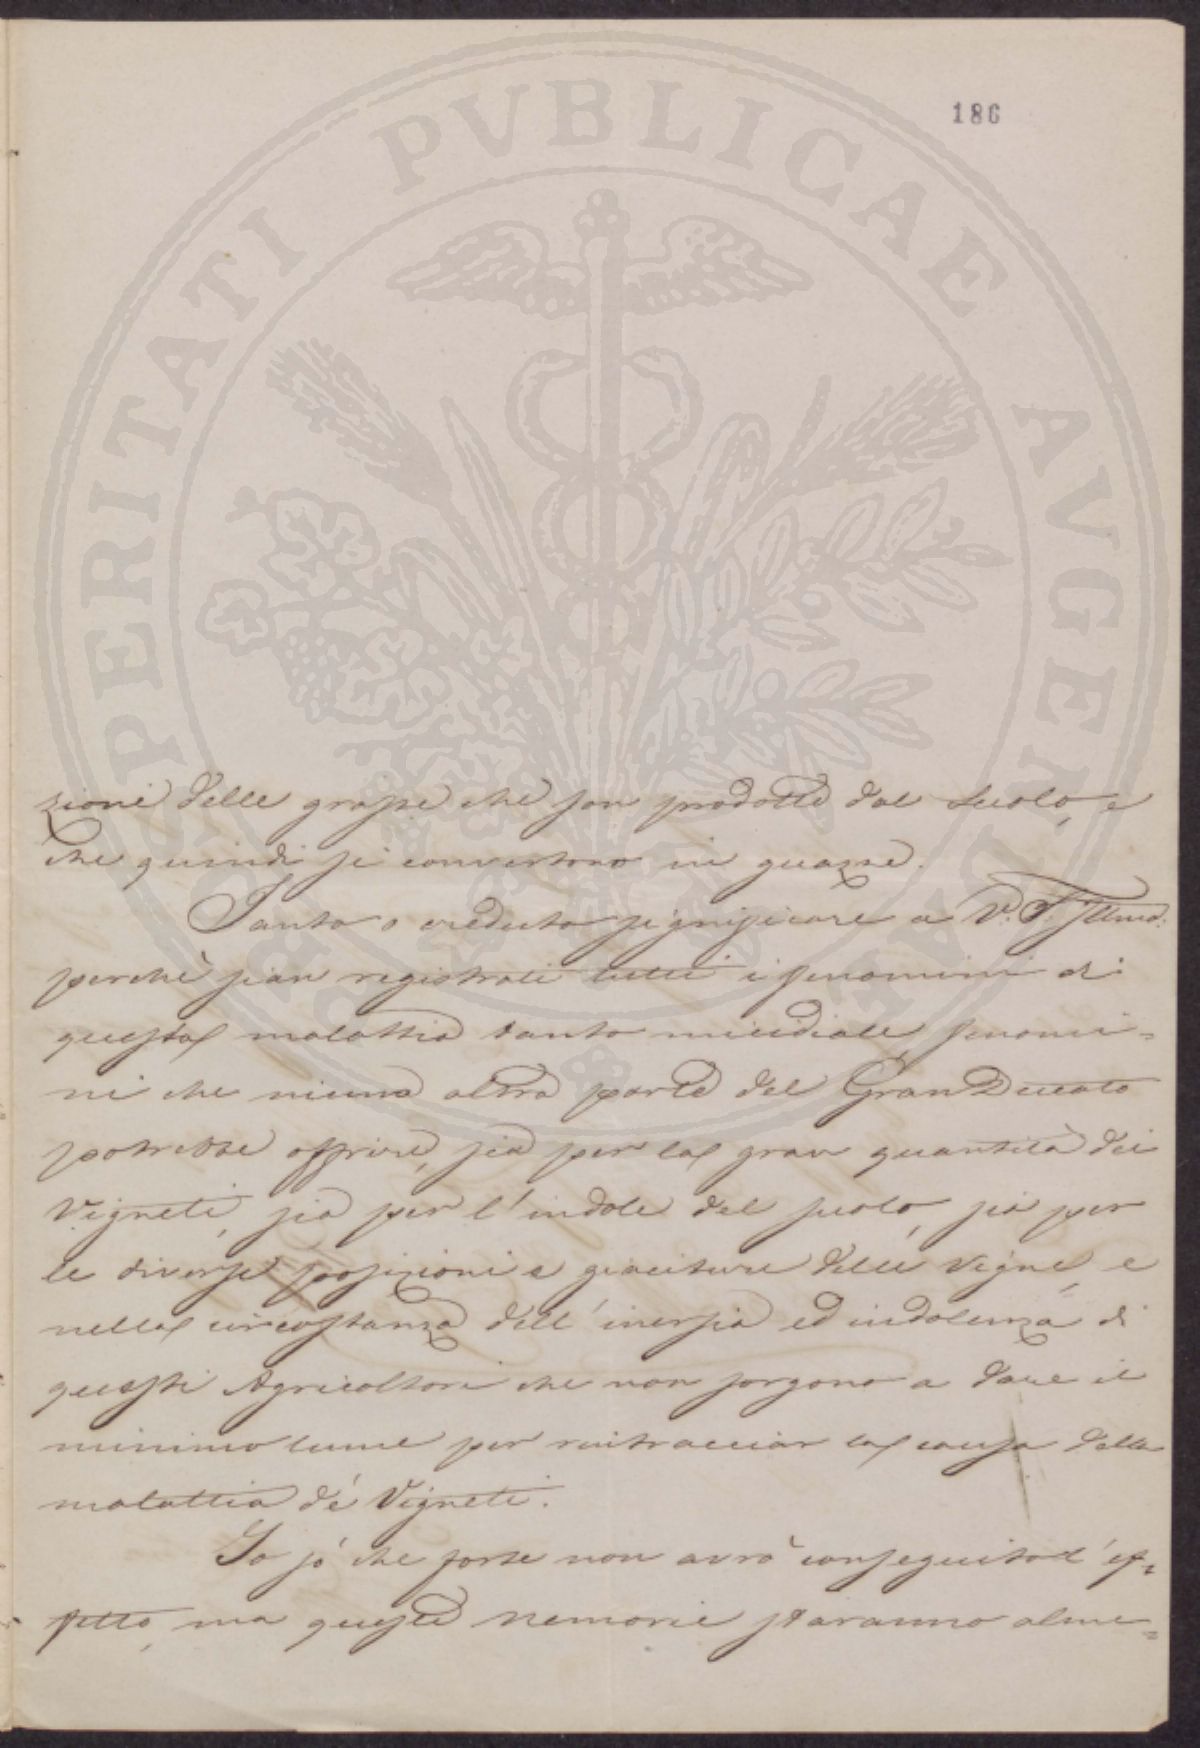 186
PROSPERITATI PVBLICAE AVGENDAE
zione delle grasse che son prodotte dal suolo, e
che quindi si convertono in guazze.
Tanto o creduto significare a V. S. Illma.
perchè sian registrati tutti i fenomini di
questa malattia tanto micidiale, fenomi=
ni che niuna altra parte del GranDucato
potrebbe offrire, sia per la gran quantità dei
Vigneti, sia per l'indole del suolo, sia per
le diverse posizioni e giaciture delle Vigne, e
nella circostanza dell'inersia ed indolenza di
questi Agricoltori che non sorgono a dare il
minimo lume per rintracciar la causa della
malattia de' Vigneti.
Io sò che forse non avrò conseguito l'ef=
fetto, ma queste memorie staranno alme=